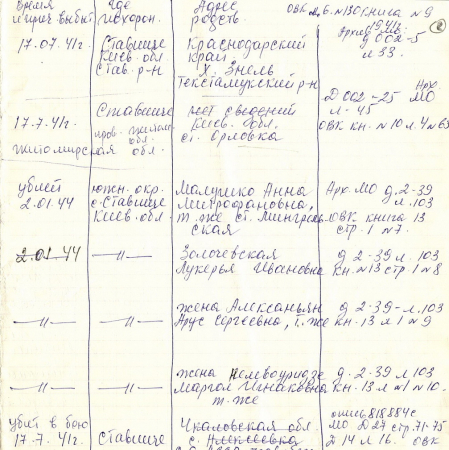 Время где Адрес ОВК
и прич. выбыт похорон. родств.
17.07.41г. Ставище Краснодарский
Киев. обл. край д 002-5
Став. р-н х. Энель л 33.
Текстамукский р-н
Ставище нет сведений Д 002-25 МО
17.7.41г. Киев. обл. л-45
Житомирская обл. обл. ст. Орловка ОВК кн. №10 л 4 №63
убит южн. окр. Малушко Анна Арх. МО д. 2-39
2.01.44 с. Ставище Митрофановна, л. 103
Киев. обл. т. же ст. ОВК книга 13
ская стр. 1 №7.
2.01.44 —//— Золочевская д 2-39 л. 103
Лукерья Ивановна кн. №13 стр 1 №8
жена Алексаньян д 2-39-л. 103
—//— —//— Арус Сергеевна, т. же кн-13 л 1 №9
жена д-2-39 л 103
—//— —//— Маргол Игнаковна Кн-13 л №1 №10.
т. же
опись 818884с
убит в бою Чкаловская обл. МО Д 27 стр. 71-75
17.7.41г. Ставище с. Алексеевка д 14 л 16. ОВК